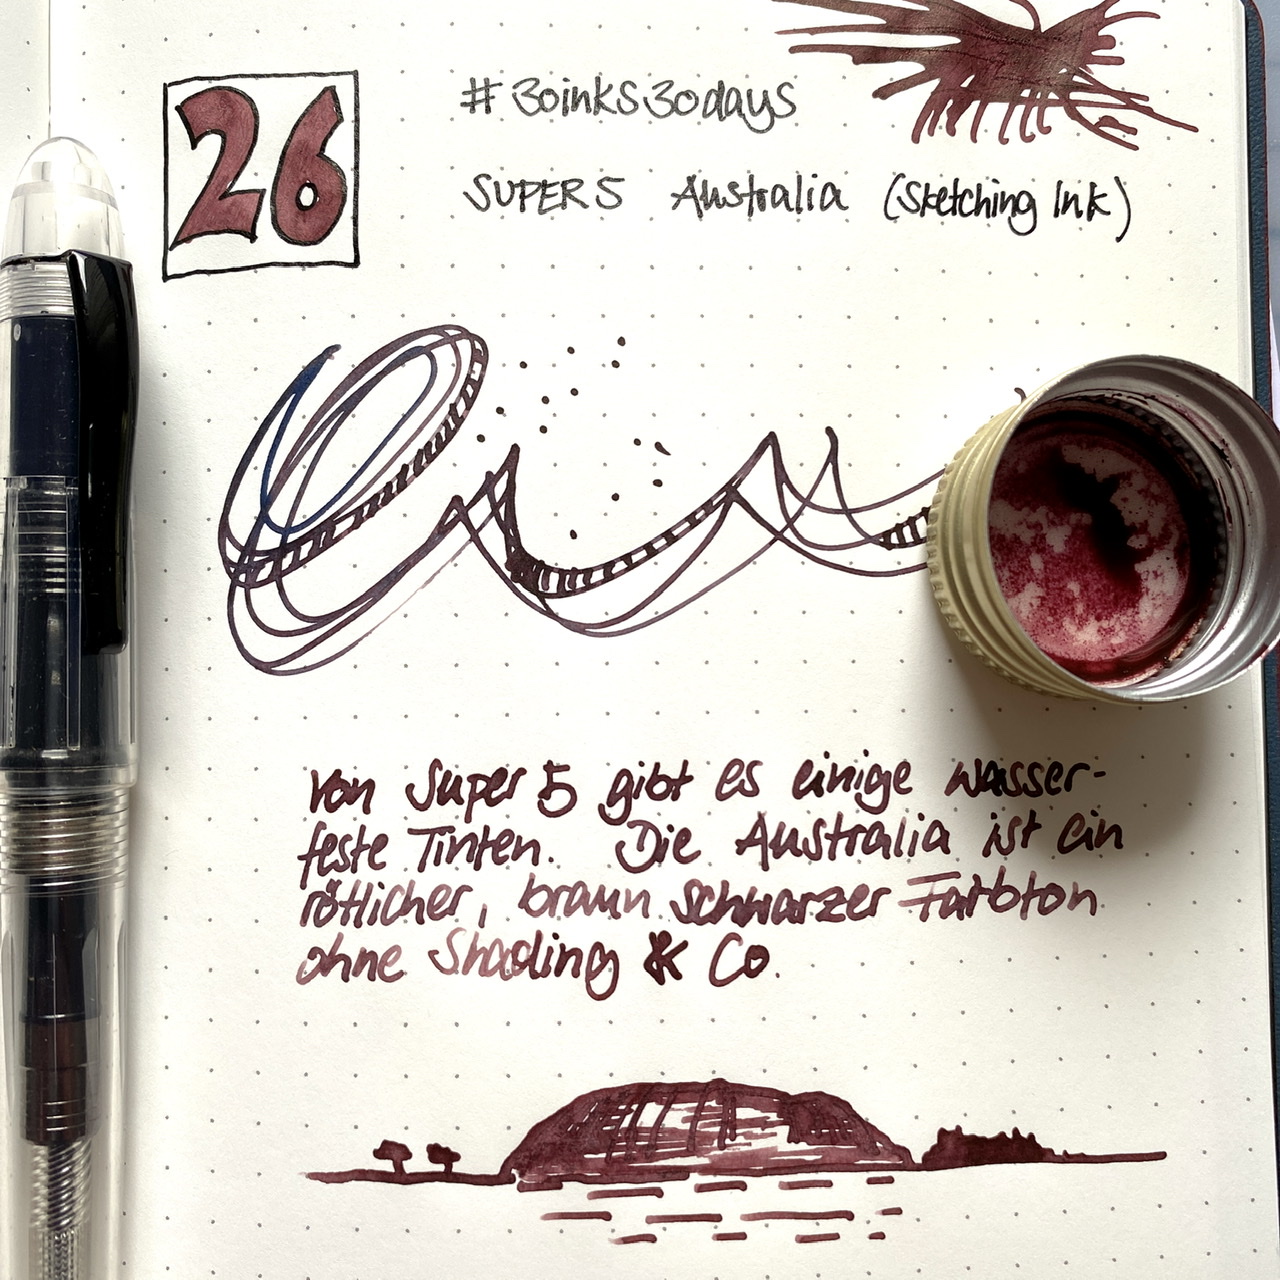 26
#30inks30days
SUPER5 Australia (Sketching Ink)
Von Super5 gibt es einige wasser-
feste Tinten. Die Australia ist ein
rötlicher, braun schwarzer Farbton
ohne Shading & Co.